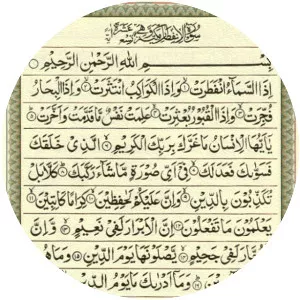 سورة الانفطار مكية وهي تسع عشرة آية
بِسْمِ اللّٰهِ الرَّحْمٰنِ الرَّحِيْمِ
اِذَا السَّمَآءُ انْفَطَرَتْ وَاِذَا الْكَوَاكِبُ انْتَثَرَتْ وَاِذَا الْبِحَارُ
فُجِّرَتْ وَاِذَا الْقُبُوْرُ بُعْثِرَتْ عَلِمَتْ نَفْسٌ مَّا قَدَّمَتْ وَاَخَّرَتْ
يٰٓاَيُّهَا الْاِنْسَانُ مَا غَرَّكَ بِرَبِّكَ الْكَرِيْمِ الَّذِيْ خَلَقَكَ
فَسَوّٰىكَ فَعَدَلَكَ فِيْٓ اَيِّ صُوْرَةٍ مَّا شَآءَ رَكَّبَكَ كَلَّا بَلْ
تُكَذِّبُوْنَ بِالدِّيْنِ وَاِنَّ عَلَيْكُمْ لَحٰفِظِيْنَ كِرَامًا كَاتِبِيْنَ
يَعْلَمُوْنَ مَا تَفْعَلُوْنَ اِنَّ الْاَبْرَارَ لَفِيْ نَعِيْمٍ وَاِنَّ
لَفِيْ جَحِيْمٍ يَصْلَوْنَهَا يَوْمَ الدِّيْنِ وَمَا هُمْ
وَمَآ اَدْرٰىكَ مَا يَوْمُ الدِّيْنِ